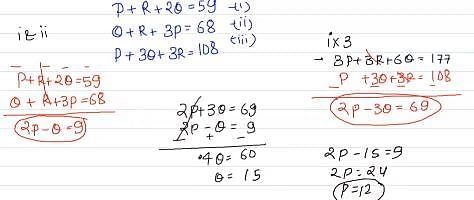 P+R+2Q=59 -(i)
Q+R+3P=68 (ii)
P+3Q+3R=108 (iii)
i & ii
P+R+2Q=59
Q+R+3P=68
2P-Q=9
2P+3Q=69
2P-Q=9
- + -
4Q=60
Q=15
i×3
3P+3R+6Q=177
P +3Q+3R=108
- - - -
2P-3Q=69
2P-15=9
2P=24
P=12